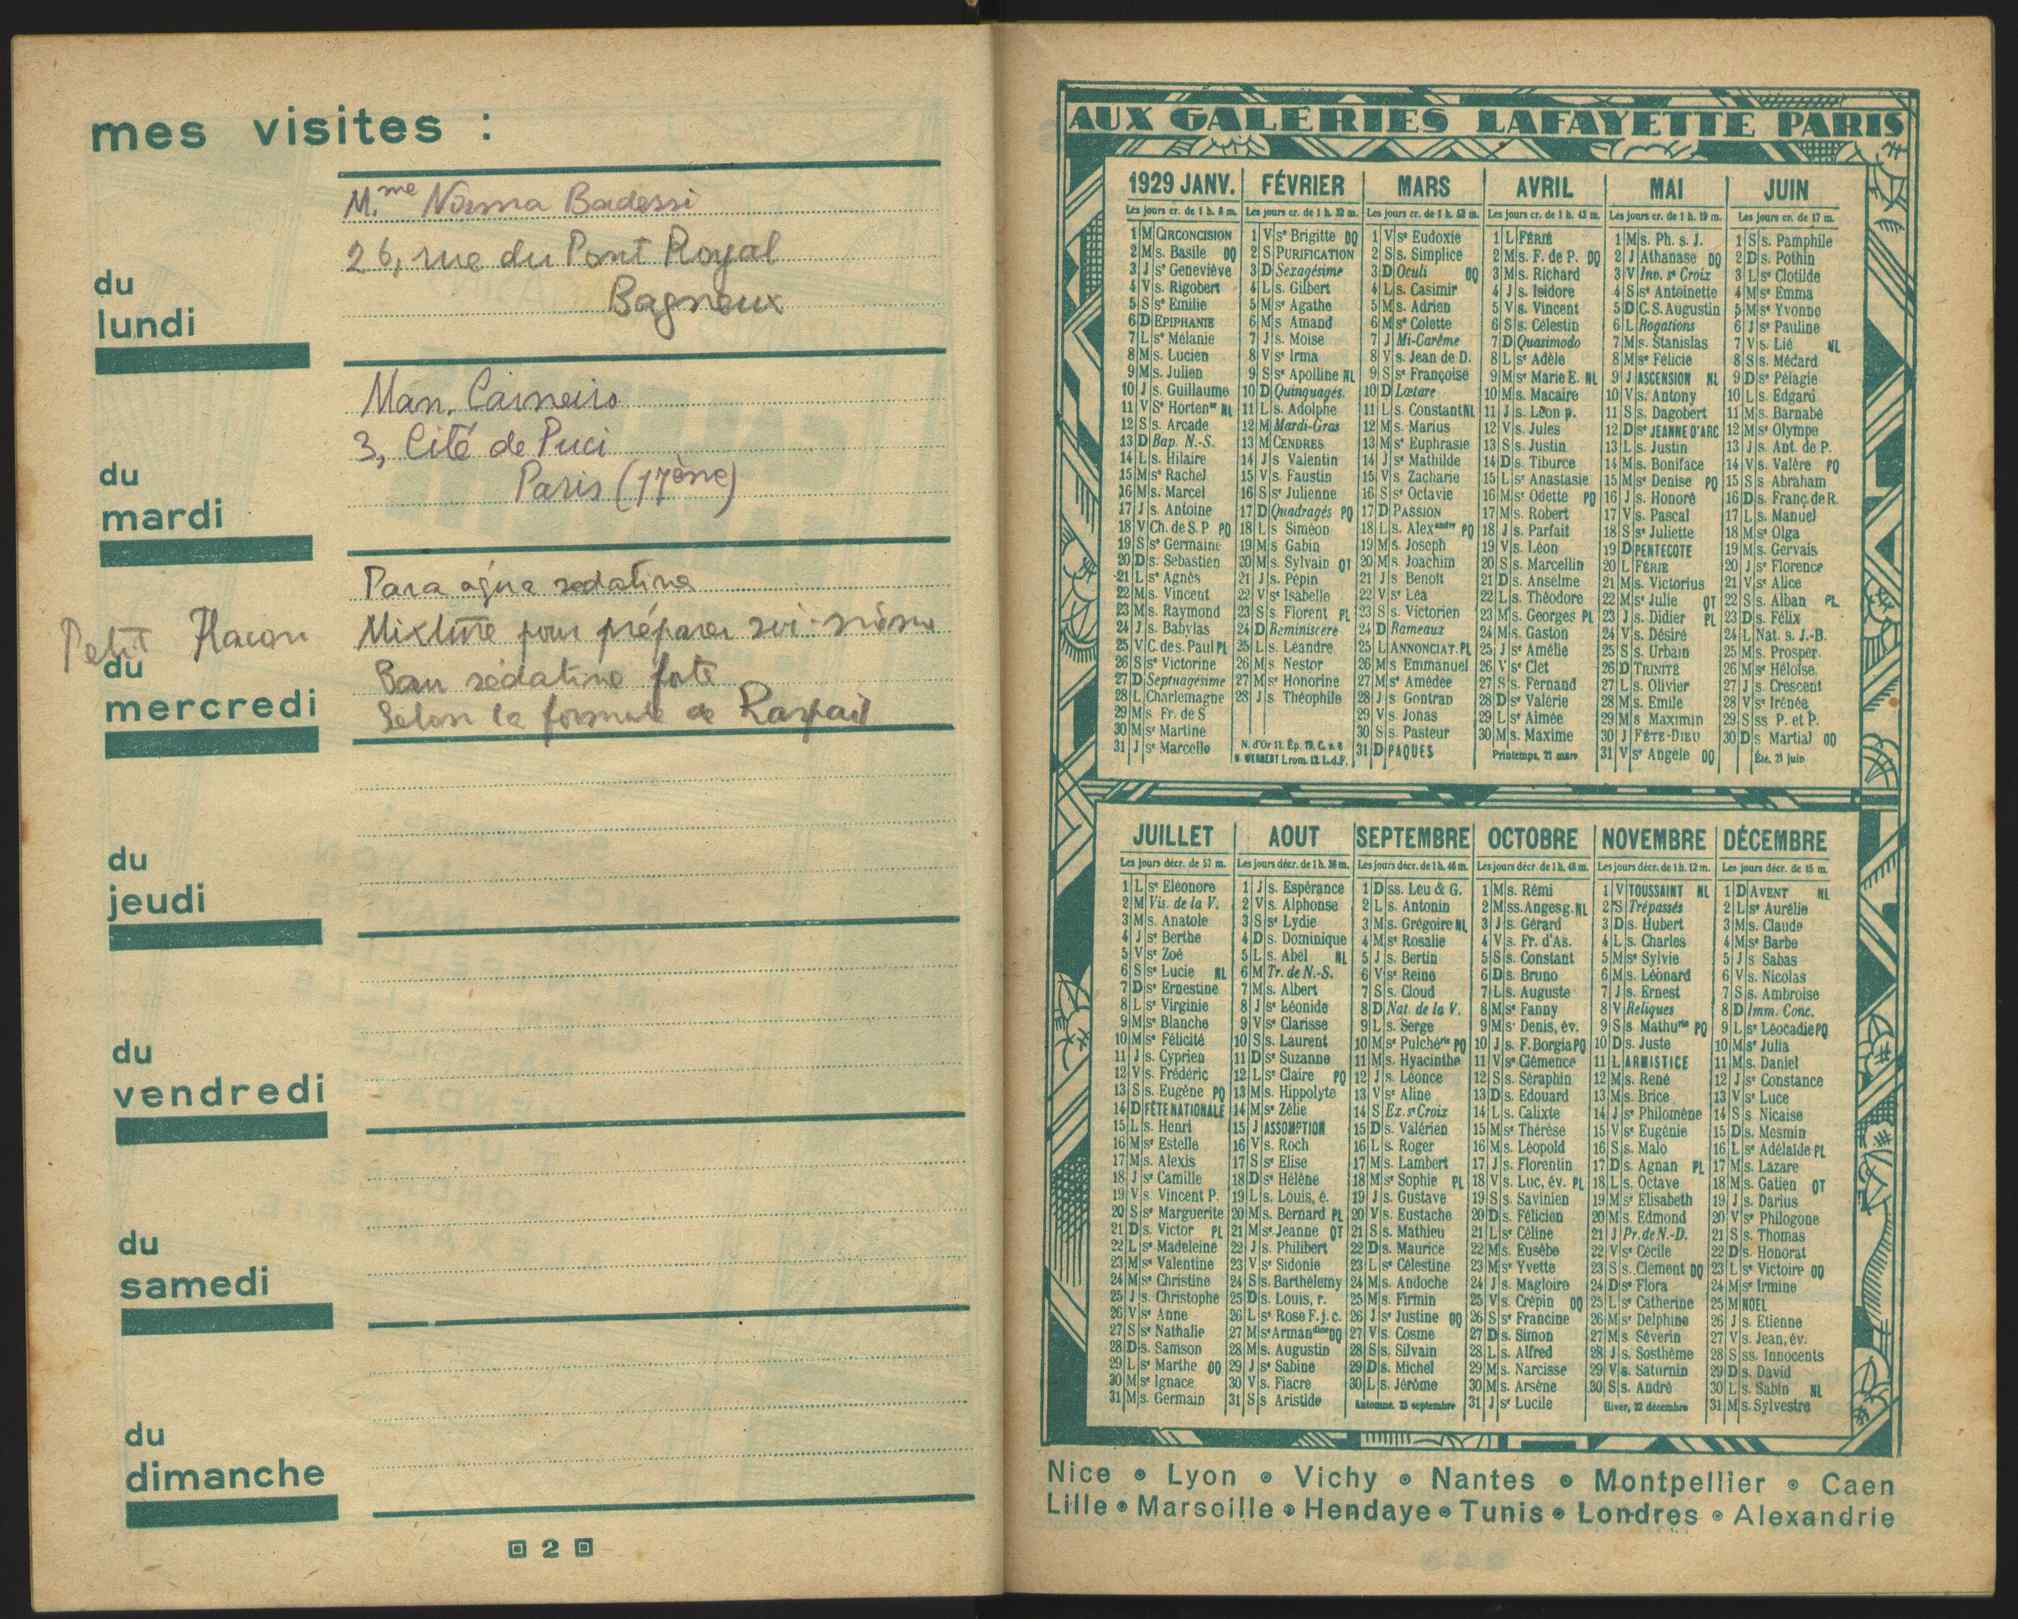 mes visites :
M.me Norma Badessi
26, rue du Pont Royal
Bagneux
du
lundi
Man. Carneiro
3, Cité de Puci
Paris (17ème)
du
mardi
Para agua sedativa
Petit Flacon Mixture pour préparer soi-même
Eau sédative forte
Selon la formule de Raspail
du
mercredi
du
jeudi
du
vendredi
du
samedi
du
dimanche
2
AUX GALERIES LAFAYETTE PARIS
1929 JANV.
Les jours cr. de 1 h. 8 m.
1 M CIRCONCISION
2 M s. Basile DQ
3 J se Geneviève
4 V s. Rigobert
5 S se Emilie
6 D EPIPHANIE
7 L se Mélanie
8 M s. Lucien
9 M s. Julien
10 J s. Guillaume
11 V Se Hortense NL
12 S s. Arcade
13 D Bap. N.-S.
14 L s. Hilaire
15 M se Rachel
16 M s. Marcel
17 J s. Antoine
18 V Ch. de S. P PQ
19 S se Germaine
20 D s. Sébastien
21 L se Agnès
22 M s. Vincent
23 M s. Raymond
24 J s. Babylas
25 V C. de s. Paul PL
26 S se Victorine
27 D Septuagésime
28 L Charlemagne
29 M s Fr. de S
30 M se Martine
31 J se Marcelle
FÉVRIER
Les jours cr. de 1 h. 32 m.
1 V se Brigitte DQ
2 S PURIFICATION
3 D Sexagésime
4 L s. Gilbert
5 M se Agathe
6 M s Amand
7 J s. Moise
8 V se Irma
9 S se Apolline NL
10 D Quinquagés.
11 L s. Adolphe
12 M Mardi-Gras
13 M CENDRES
14 J s Valentin
15 V s. Faustin
16 S se Julienne
17 D Quadragés PQ
18 L s Siméon
19 M s Gabin
20 M s. Sylvain QT
21 J s. Pépin
22 V se Isabelle
23 S s. Florent PL
24 D Reminiscere
25 L s. Léandre
26 M s Nestor
27 M se Honorine
28 J s. Théophile
N. d'Or 11. Ép. 19. C. s. 6
Lrom. 12 L.d.F.
MARS
Les jours cr. de 1 h. 52 m.
1 V se Eudoxie
2 S s. Simplice
3 D Oculi DQ
4 L s. Casimir
5 M s. Adrien
6 M se Colette
7 J Mi-Carême
8 V s. Jean de D.
9 S se Françoise
10 D Lætare
11 L s. Constant NL
12 M s. Marius
13 M se Euphrasie
14 J se Mathilde
15 V s Zacharie
16 S se Octavie
17 D PASSION
18 L s. Alexandre PQ
19 M s. Joseph
20 M s. Joachim
21 J s Benoît
22 V se Léa
23 S s. Victorien
24 D Rameaux
25 L ANNONCIAT. PL
26 M s Emmanuel
27 M se Amédée
28 J s Gontran
29 V s Jonas
30 S s. Pasteur
31 D PAQUES
AVRIL
Les jours cr. de 1 h. 43 m.
1 L FÉRIÉ
2 M s. F. de P. DQ
3 M s. Richard
4 J s. Isidore
5 V s. Vincent
6 S s. Célestin
7 D Quasimodo
8 L se Adèle
9 M se Marie E. NL
10 M s. Macaire
11 J s. Léon p.
12 V s. Jules
13 S s. Justin
14 D s. Tiburce
15 L se Anastasie
16 M se Odette PQ
17 M s. Robert
18 J s. Parfait
19 V s. Léon
20 S s. Marcellin
21 D s. Anselme
22 L s. Théodore
23 M s. Georges PL
24 M s. Gaston
25 J se Amélie
26 V se Clet
27 S s. Fernand
28 D se Valérie
29 L se Aimée
30 M s. Maxime
Printemps, 21 mars
MAI
Les jours cr. de 1 h. 19 m.
1 M s. Ph. s. J.
2 J Athanase DQ
3 V Inv. se Croix
4 S se Antoinette
5 D C. S. Augustin
6 L Rogations
7 M s. Stanislas
8 M se Félicie
9 J ASCENSION NL
10 V s. Antony
11 S s. Dagobert
12 D se JEANNE D'ARC
13 L s. Justin
14 M s. Boniface
15 M se Denise PQ
16 J s. Honoré
17 V s. Pascal
18 S se Juliette
19 D PENTECOTE
20 L FÉRIÉ
21 M s. Victorius
22 M se Julie QT
23 J s. Didier PL
24 V s. Désiré
25 S s. Urbain
26 D TRINITÉ
27 L s. Olivier
28 M s. Emile
29 M s Maximin
30 J FÊTE-DIEU
31 V se Angèle DQ
JUIN
Les jours cr. de 17 m.
1 S s. Pamphile
2 D s. Pothin
3 L se Clotilde
4 M se Emma
5 M se Yvonne
6 J se Pauline
7 V s. Lié NL
8 S s. Médard
9 D se Pélagie
10 L s. Edgard
11 M s. Barnabé
12 M se Olympe
13 J s. Ant. de P.
14 V s. Valère PQ
15 S s Abraham
16 D s. Franç. de R.
17 L s. Manuel
18 M se Olga
19 M s. Gervais
20 J se Florence
21 V se Alice
22 S s. Alban PL
23 D s. Félix
24 L Nat. s. J.-B.
25 M s. Prosper
26 M se Héloïse
27 J s. Crescent
28 V se Irénée
29 S ss P. et P.
30 D s Martial DQ
Été, 21 juin
JUILLET
Les jours décr. de 57 m.
1 L se Eléonore
2 M Vis. de la V.
3 M s. Anatole
4 J se Berthe
5 V se Zoé
6 S se Lucie NL
7 D se Ernestine
8 L se Virginie
9 M se Blanche
10 M se Félicité
11 J s. Cyprien
12 V s. Frédéric
13 S s. Eugène PQ
14 D FÊTE NATIONALE
15 L s. Henri
16 M se Estelle
17 M s. Alexis
18 J se Camille
19 V s. Vincent P.
20 S se Marguerite
21 D s. Victor PL
22 L se Madeleine
23 M se Valentine
24 M se Christine
25 J s. Christophe
26 V se Anne
27 S se Nathalie
28 D s. Samson
29 L se Marthe DQ
30 M se Ignace
31 M s. Germain
AOUT
Les jours décr. de 1 h. 36 m.
1 J s. Espérance
2 V s. Alphonse
3 S se Lydie
4 D s. Dominique
5 L s. Abel NL
6 M Tr. de N.-S.
7 M s. Albert
8 J se Léonide
9 V se Clarisse
10 S s. Laurent
11 D se Suzanne
12 L se Claire PQ
13 M s. Hippolyte
14 M se Zélie
15 J ASSOMPTION
16 V s. Roch
17 S se Elise
18 D se Hélène
19 L s. Louis, é.
20 M s. Bernard PL
21 M se Jeanne QT
22 J s. Philibert
23 V se Sidonie
24 S s. Barthélemy
25 D s. Louis, r.
26 L se Rose F. j. c.
27 M se Armandine DQ
28 M s. Augustin
29 J se Sabine
30 V s. Fiacre
31 S s Aristide
SEPTEMBRE
Les jours décr. de 1 h. 46 m.
1 D ss. Leu & G.
2 L s. Antonin
3 M s. Grégoire NL
4 M se Rosalie
5 J s. Bertin
6 V se Reine
7 S s. Cloud
8 D Nat. de la V.
9 L s. Serge
10 M se Pulchérie PQ
11 M s. Hyacinthe
12 J s. Léonce
13 V se Aline
14 S Ex. se Croix
15 D s. Valérien
16 L s. Roger
17 M s. Lambert
18 M se Sophie PL
19 J s. Gustave
20 V s. Eustache
21 S s. Mathieu
22 D s. Maurice
23 L se Célestine
24 M s. Andoche
25 M s. Firmin
26 J se Justine DQ
27 V s. Cosme
28 S s. Silvain
29 D s. Michel
30 L s. Jérôme
Automne, 23 septembre
OCTOBRE
Les jours décr. de 1 h. 43 m.
1 M s. Rémi
2 M ss. Anges g. NL
3 J s. Gérard
4 V s. Fr. d'As.
5 S s. Constant
6 D s. Bruno
7 L s. Auguste
8 M se Fanny
9 M se Denis, év.
10 J s. F. Borgia PQ
11 V se Clémence
12 S s. Séraphin
13 D s. Edouard
14 L s. Calixte
15 M se Thérèse
16 M s. Léopold
17 J s. Florentin
18 V s. Luc, év. PL
19 S s. Savinien
20 D s. Félicien
21 L se Céline
22 M s. Eusèbe
23 M se Yvette
24 J s. Magloire
25 V s. Crépin DQ
26 S se Francine
27 D s. Simon
28 L s. Alfred
29 M s. Narcisse
30 M s. Arsène
31 J se Lucile
NOVEMBRE
Les jours décr. de 1 h. 12 m.
1 V TOUSSAINT NL
2 S Trépassés
3 D s. Hubert
4 L s. Charles
5 M se Sylvie
6 M s. Léonard
7 J s. Ernest
8 V Reliques
9 S s Mathurin PQ
10 D s. Juste
11 L ARMISTICE
12 M s. René
13 M s. Brice
14 J se Philomène
15 V se Eugénie
16 S s. Malo
17 D s. Agnan PL
18 L s. Octave
19 M se Elisabeth
20 M s. Edmond
21 J Pr. de N.-D.
22 V se Cécile
23 S s. Clément DQ
24 D se Flora
25 L se Catherine
26 M se Delphine
27 M s Séverin
28 J s. Sosthème
29 V s. Saturnin
30 S s. André
Hiver, 22 décembre
DÉCEMBRE
Les jours décr. de 15 m.
1 D AVENT NL
2 L se Aurélie
3 M s. Claude
4 M se Barbe
5 J s Sabas
6 V s. Nicolas
7 S s. Ambroise
8 D Imm. Conc.
9 L se Léocadie PQ
10 M se Julia
11 M s. Daniel
12 J se Constance
13 V se Luce
14 S s. Nicaise
15 D s. Mesmin
16 L se Adélaïde PL
17 M s. Lazare
18 M s. Gatien QT
19 J s. Darius
20 V se Philogone
21 S s. Thomas
22 D s. Honorat
23 L se Victoire DQ
24 M se Irmine
25 M NOEL
26 J s. Etienne
27 V s. Jean, év.
28 S ss. Innocents
29 D s. David
30 L s. Sabin NL
31 M s. Sylvestre
Nice • Lyon • Vichy • Nantes • Montpellier • Caen
Lille • Marseille • Hendaye • Tunis • Londres • Alexandrie